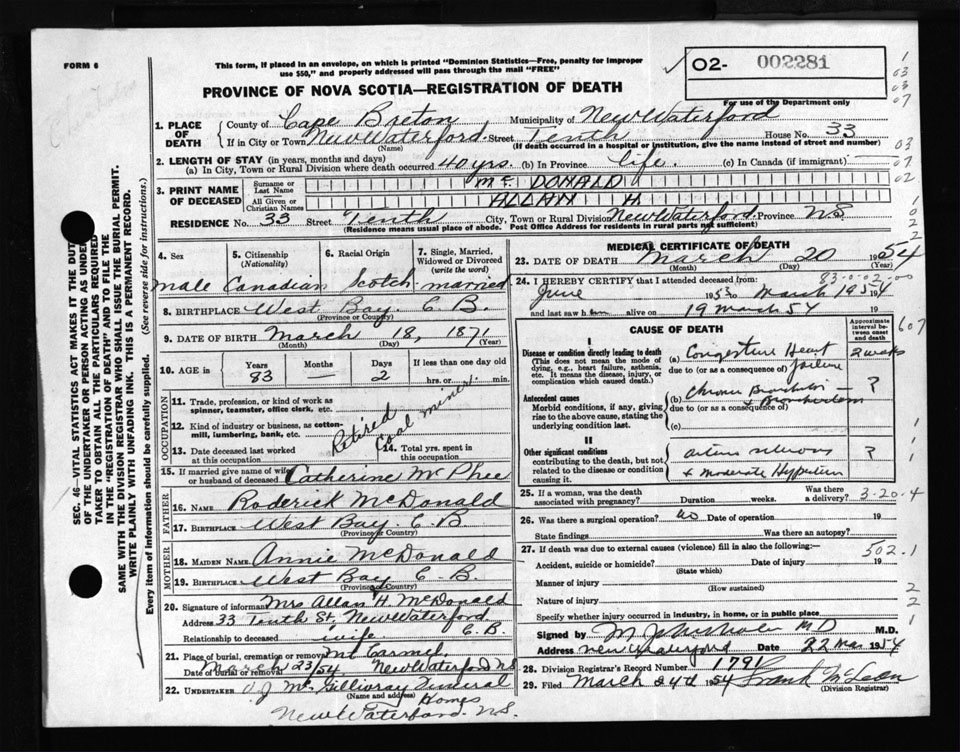 FORM 6
This form, if placed in an envelope, on which is printed "Dominion Statistics—Free, penalty for improper
use $50," and properly addressed will pass through the mail "FREE"
PROVINCE OF NOVA SCOTIA—REGISTRATION OF DEATH
O2- 002281
For use of the Department only
1
03
03
07
03
07
02
1. PLACE OF DEATH
County of Cape Breton Municipality of New Waterford
If in City or Town New Waterford Street Tenth House No. 33
(Name) (If death occurred in a hospital or institution, give the name instead of street and number)
2. LENGTH OF STAY (in years, months and days)
(a) In City, Town or Rural Division where death occurred 40 yrs. (b) In Province life. (c) In Canada (if immigrant)
3. PRINT NAME OF DECEASED
Surname or Last Name Mc DONALD
All Given or Christian Names ALLAN H
RESIDENCE No. 33 Street Tenth City, Town or Rural Division New Waterford Province N.S
(Residence means usual place of abode. Post Office Address for residents in rural parts not sufficient)
4. Sex
male
5. Citizenship (Nationality)
Canadian
6. Racial Origin
Scotch
7. Single, Married, Widowed or Divorced (write the word)
married
8. BIRTHPLACE West Bay. C. B.
(Province or Country)
9. DATE OF BIRTH March 18, 1871
(Month) (Day) (Year)
10. AGE in Years Months Days If less than one day old
83 — 2 hrs. or min.
OCCUPATION
11. Trade, profession, or kind of work as spinner, teamster, office clerk, etc.
12. Kind of industry or business, as cotton-mill, lumbering, bank, etc.
Retired Coal miner
13. Date deceased last worked at this occupation
14. Total yrs. spent in this occupation
15. If married give name of wife or husband of deceased Catherine McPhee
FATHER
16. NAME Roderick McDonald
17. BIRTHPLACE West Bay. C. B
(Province or Country)
MOTHER
18. MAIDEN NAME Annie McDonald
19. BIRTHPLACE West Bay C. B.
(Province or Country)
20. Signature of informant Mrs Allan H. McDonald
Address 33 Tenth St, New Waterford
Relationship to deceased wife C. B.
21. Place of burial, cremation or removal Mt Carmel,
Date of burial or removal March 23/54 New Waterford NS
22. UNDERTAKER Mc Gillivray Funeral Homes
(Name and address)
New Waterford. N.S.
MEDICAL CERTIFICATE OF DEATH
23. DATE OF DEATH March 20 1954
(Month) (Day) (Year)
24. I HEREBY CERTIFY that I attended deceased from: 83-0-02-00
June 1953 to March 1954
and last saw him alive on 19 March 54 19
CAUSE OF DEATH
Approximate interval between onset and death
I
Disease or condition directly leading to death
(This does not mean the mode of dying, e.g., heart failure, asthenia, etc. It means the disease, injury, or complication which caused death.)
(a) Congestive Heart failure 2 weeks
due to (or as a consequence of)
Antecedent causes
Morbid conditions, if any, giving rise to the above cause, stating the underlying condition last.
(b) Chronic Bronchitis ?
due to (or as a consequence of)
(c)
II
Other significant conditions
contributing to the death, but not related to the disease or condition causing it.
?
+ moderate
607
25. If a woman, was the death associated with pregnancy? Duration weeks. Was there a delivery? 3-20-4
26. Was there a surgical operation? no Date of operation 19
State findings Was there an autopsy?
27. If death was due to external causes (violence) fill in also the following:— 502.1
Accident, suicide or homicide? Date of injury 19
(State which)
Manner of injury
(How sustained)
Nature of injury
Specify whether injury occurred in industry, in home, or in public place
Signed by MD M.D.
Address New Waterford Date 22 Mar 1954
28. Division Registrar's Record Number 1791
29. Filed March 24th 1954 Frank McLean
(Division Registrar)
SEC. 46—VITAL STATISTICS ACT MAKES IT THE DUTY
OF THE UNDERTAKER OR PERSON ACTING AS UNDER-
TAKER TO OBTAIN ALL THE PARTICULARS REQUIRED
IN THE "REGISTRATION OF DEATH" AND TO FILE THE
SAME WITH THE DIVISION REGISTRAR WHO SHALL ISSUE THE BURIAL PERMIT.
WRITE PLAINLY WITH UNFADING INK. THIS IS A PERMANENT RECORD.
Every item of information should be carefully supplied. (See reverse side for instructions.)